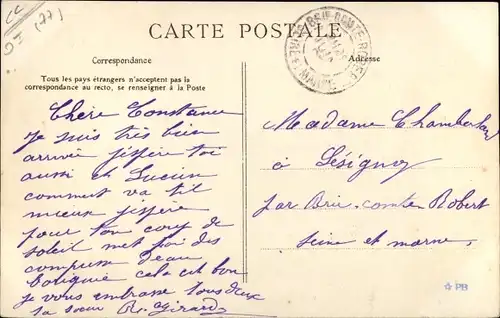 CC
(77)
CARTE POSTALE
BRIE-COMTE-ROBERT
Correspondance
Adresse
Tous les pays étrangers n'acceptent pas la
correspondance au recto, se renseigner à la Poste
Chère Constance
je suis très bien
arrivée j'ispère toi
aussi et Lucien
comment va til
mieux j'ispère
pour ton coup de
soleil met foi des
compresse d'eau
boriquée cela est bon
je vous embrasse tous deux
ta soeur R. Girard
Madame Chamberlan
à Lésigny
par Brie-comte Robert
Seine et marne
PB